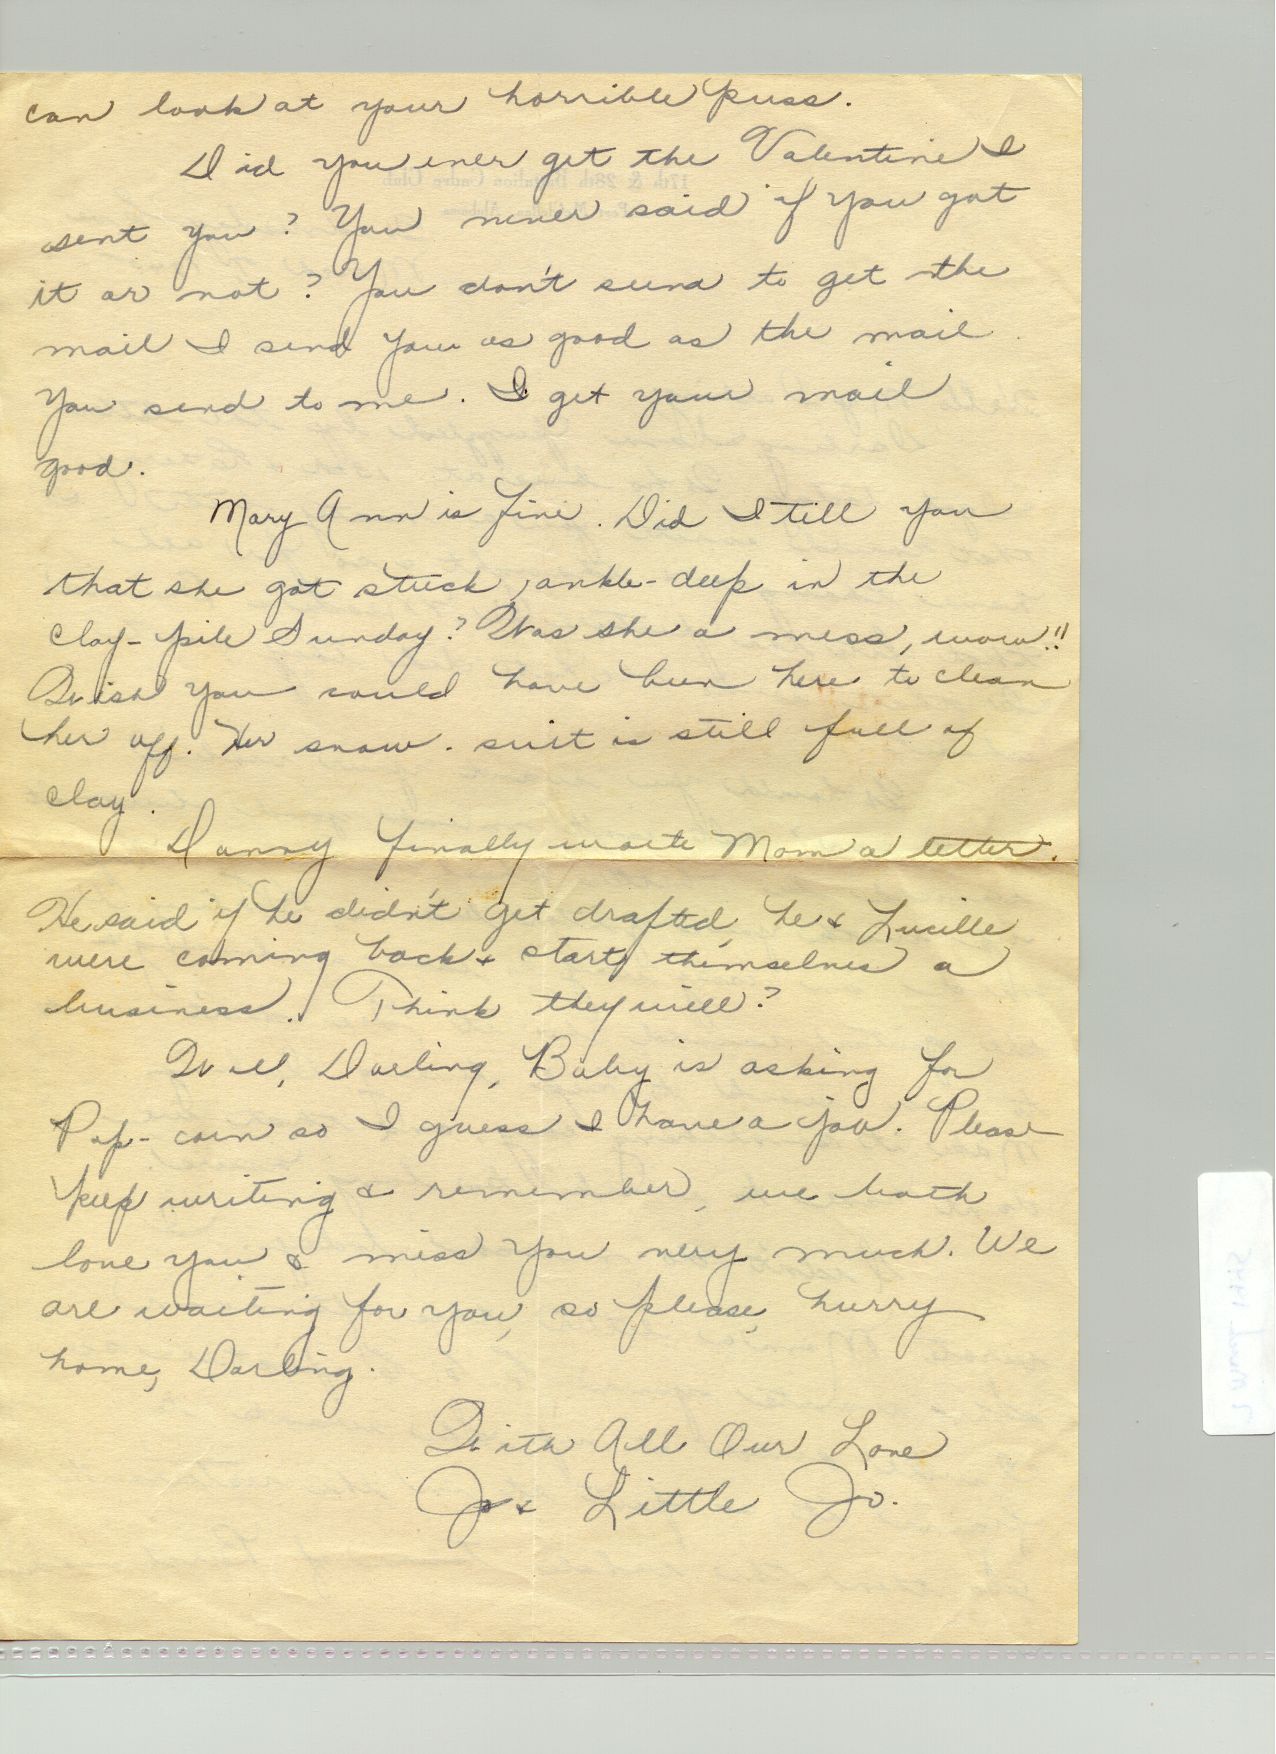 can look at your horrible puss.
Did you ever get the Valentine I
sent you? You never said if you got
it or not? You don't seem to get the
mail I send you as good as the mail
you send to me. I get your mail
good.
Mary Ann is fine. Did I tell you
that she got stuck, ankle-deep in the
clay-pile Sunday? Was she a mess, wow!!
Wish you could have been here to clean
her off. Her snow-suit is still full of
clay.
Danny finally wrote Mom a letter.
He said if he didn't get drafted, he & Lucille
were coming back & start themselves a
business. Think they will?
Well, Darling, Baby is asking for
Pop-corn so I guess I have a job. Please
keep writing & remember, we both
love you & miss you very much. We
are waiting for you, so please, hurry
home, Darling.
With All Our Love
Jo & Little Jo.